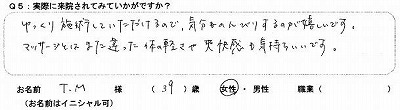 Q5:実際に来院されてみていかがですか?
ゆっくり施術していただけるので、気分ものんびりするのが嬉しいです。
マッサージとはまた違った体の軽さや爽快感も気持ちいいです。
お名前 T.M 様 (39)歳 女性・男性 職業( )
(お名前はイニシャル可)